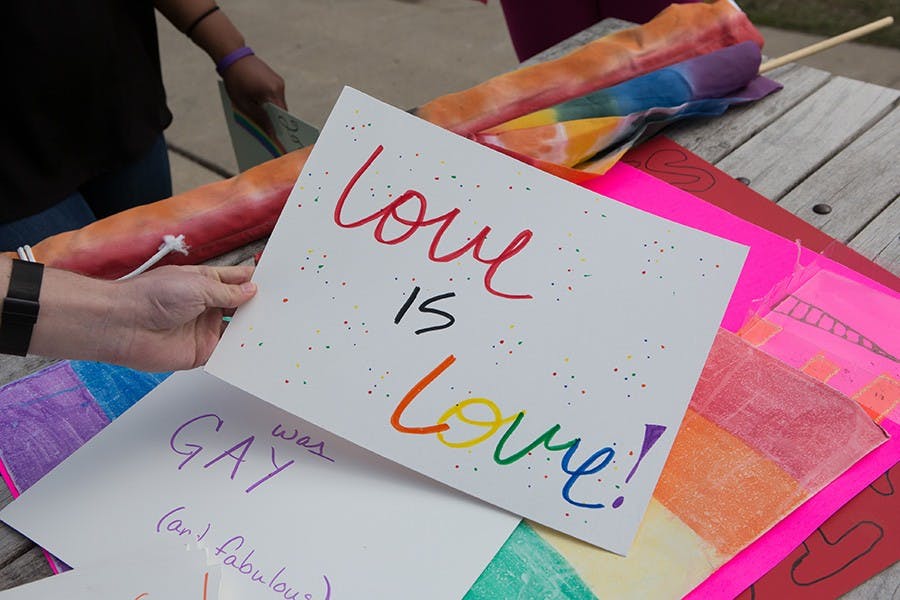 Love
is
Love!
GAY was
(and fabulous)